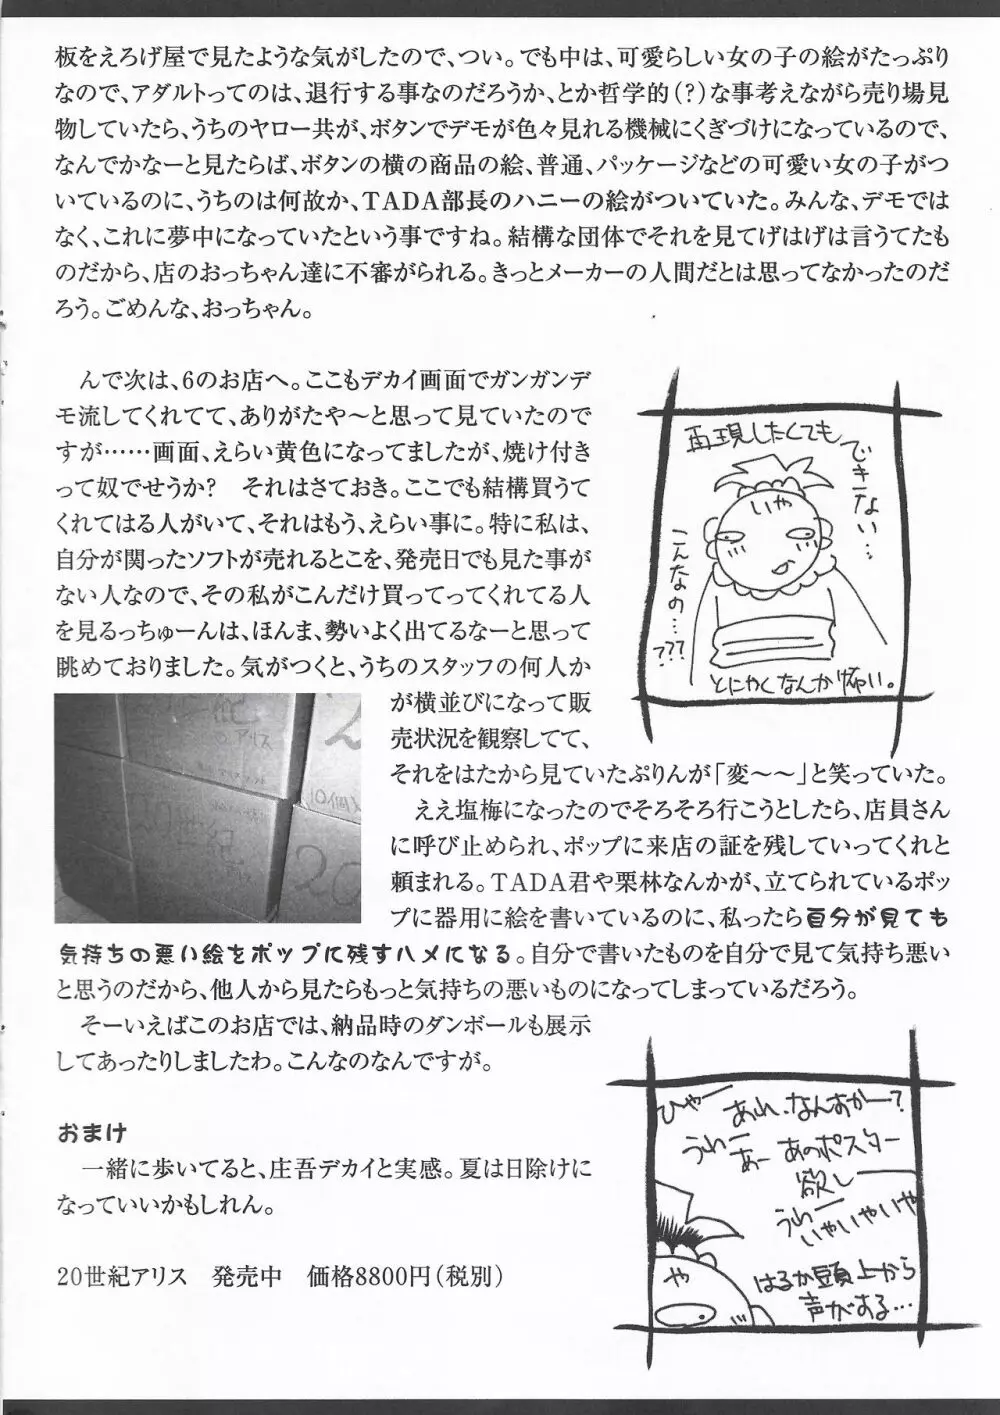 板をえろげ屋で見たような気がしたので、つい。でも中は、可愛らしい女の子の絵がたっぷり
なので、アダルトってのは、退行する事なのだろうか、とか哲学的(?)な事考えながら売り場見
物していたら、うちのヤロー共が、ボタンでデモが色々見れる機械にくぎづけになっているので、
なんでかなーと見たらば、ボタンの横の商品の絵、普通、パッケージなどの可愛い女の子がつ
いているのに、うちのは何故か、TADA部長のハニーの絵がついていた。みんな、デモでは
なく、これに夢中になっていたという事ですね。結構な団体でそれを見てげはげは言うてたも
のだから、店のおっちゃん達に不審がられる。きっとメーカーの人間だとは思ってなかったのだ
ろう。ごめんな、おっちゃん。
んで次は、6のお店へ。ここもデカイ画面でガンガンデ
モ流してくれてて、ありがたや〜と思って見ていたので
すが……画面、えらい黄色になってましたが、焼け付き
って奴でせうか?　それはさておき。ここでも結構買うて
くれてはる人がいて、それはもう、えらい事に。特に私は、
自分が関ったソフトが売れるとこを、発売日でも見た事が
ない人なので、その私がこんだけ買ってってくれてる人
を見るっちゅーんは、ほんま、勢いよく出てるなーと思って
眺めておりました。気がつくと、うちのスタッフの何人か
が横並びになって販
売状況を観察してて、
それをはたから見ていたぷりんが「変〜〜」と笑っていた。
ええ塩梅になったのでそろそろ行こうとしたら、店員さん
に呼び止められ、ポップに来店の証を残していってくれと
頼まれる。TADA君や栗林なんかが、立てられているポッ
プに器用に絵を書いているのに、私ったら自分が見ても
気持ちの悪い絵をポップに残すハメになる。自分で書いたものを自分で見て気持ち悪い
と思うのだから、他人から見たらもっと気持ちの悪いものになってしまっているだろう。
そーいえばこのお店では、納品時のダンボールも展示
してあったりしましたわ。こんなのなんですが。
再現したくても
できない…
いや
こんなの…???
とにかくなんか怖い。
アリス
20
おまけ
一緒に歩いてると、庄吾デカイと実感。夏は日除けに
なっていいかもしれん。
20世紀アリス　発売中　価格8800円(税別)
ひゃー
あれ、なんすかー?
うわー
あー あのポスター
欲しー
うわー
いやいやいや
や
はるか頭上から
声がする…